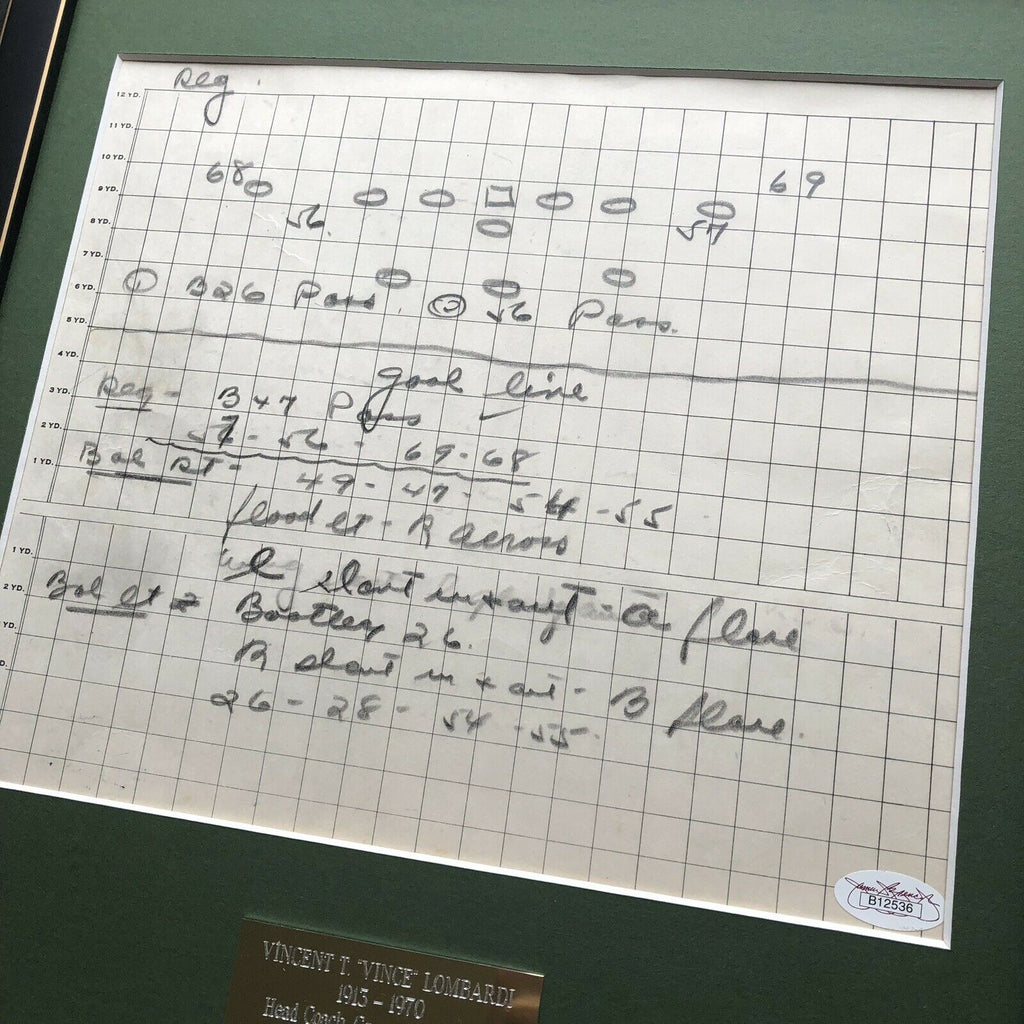 Reg.
12 YD.
11 YD.
10 YD.
68 69
9 YD.
56. 57
8 YD.
7 YD.
6 YD.
① B26 Pass. ② 56 Pass.
5 YD.
4 YD.
goal line
3 YD.
Reg - B47 Pass
2 YD.
57 - 56 - 69 - 68
1 YD.
Bal RT - 49 - 47 - 54 - 55
flood Lt - R across
1 YD.
L slant in + out - a flare
2 YD.
Bal Lt = Bootleg 26.
YD.
R slant in + out - B flare.
D.
26 - 28 - 54 - 55.
B12536
VINCENT T. "VINCE" LOMBARDI
1913 – 1970
Head Coach